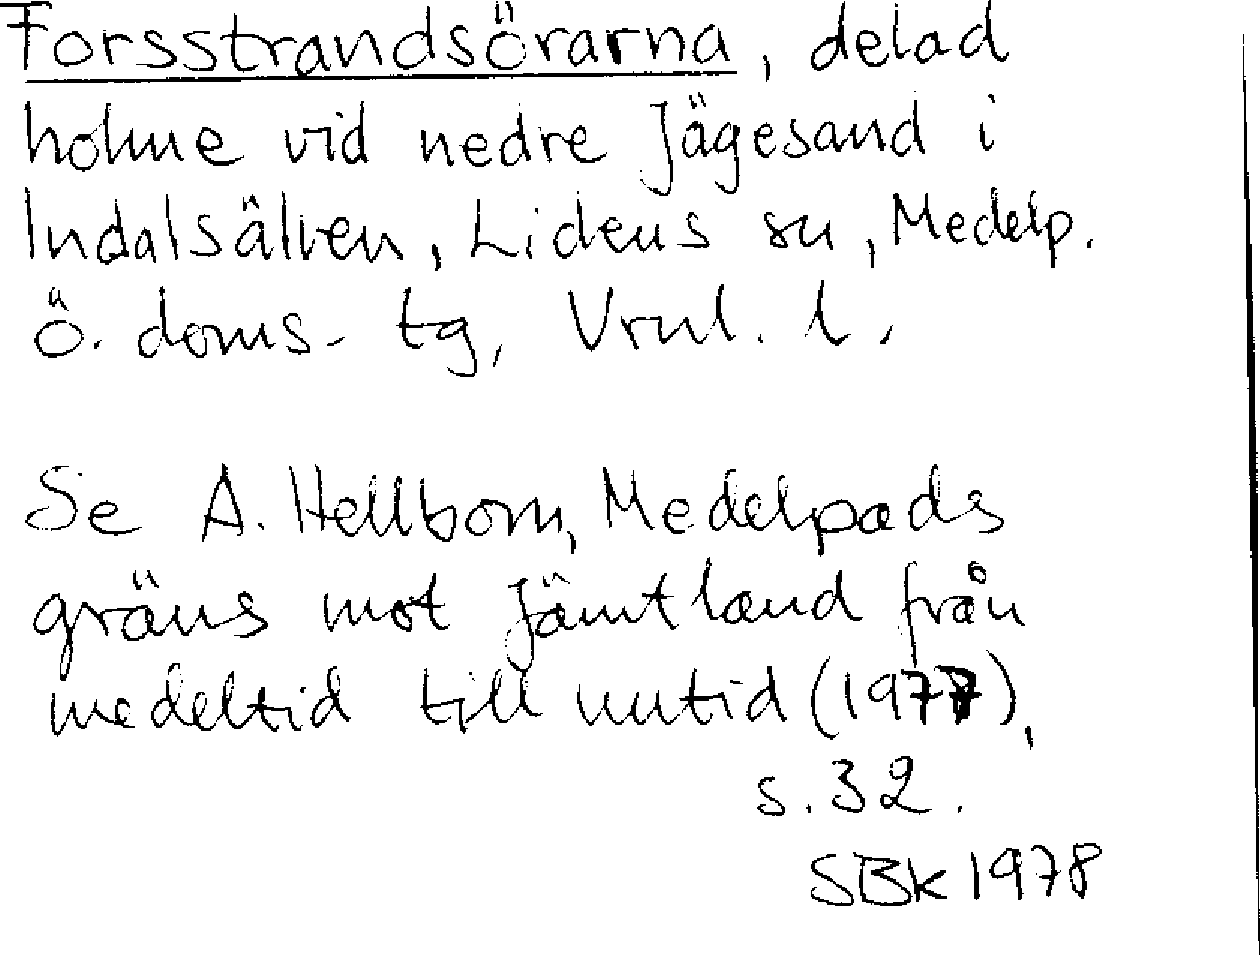 Forsstrandsörarna, delad
holme vid nedre Jägesand i
Indalsälven, Lidens sn, Medelp.
ö. doms. tg, Vrnl. l.
Se A. Hellbom, Medelpads
gräns mot Jämtland från
medeltid till nutid (1977),
s. 32.
SBk 1978